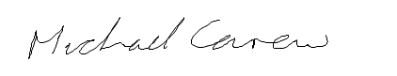 Michael Carew